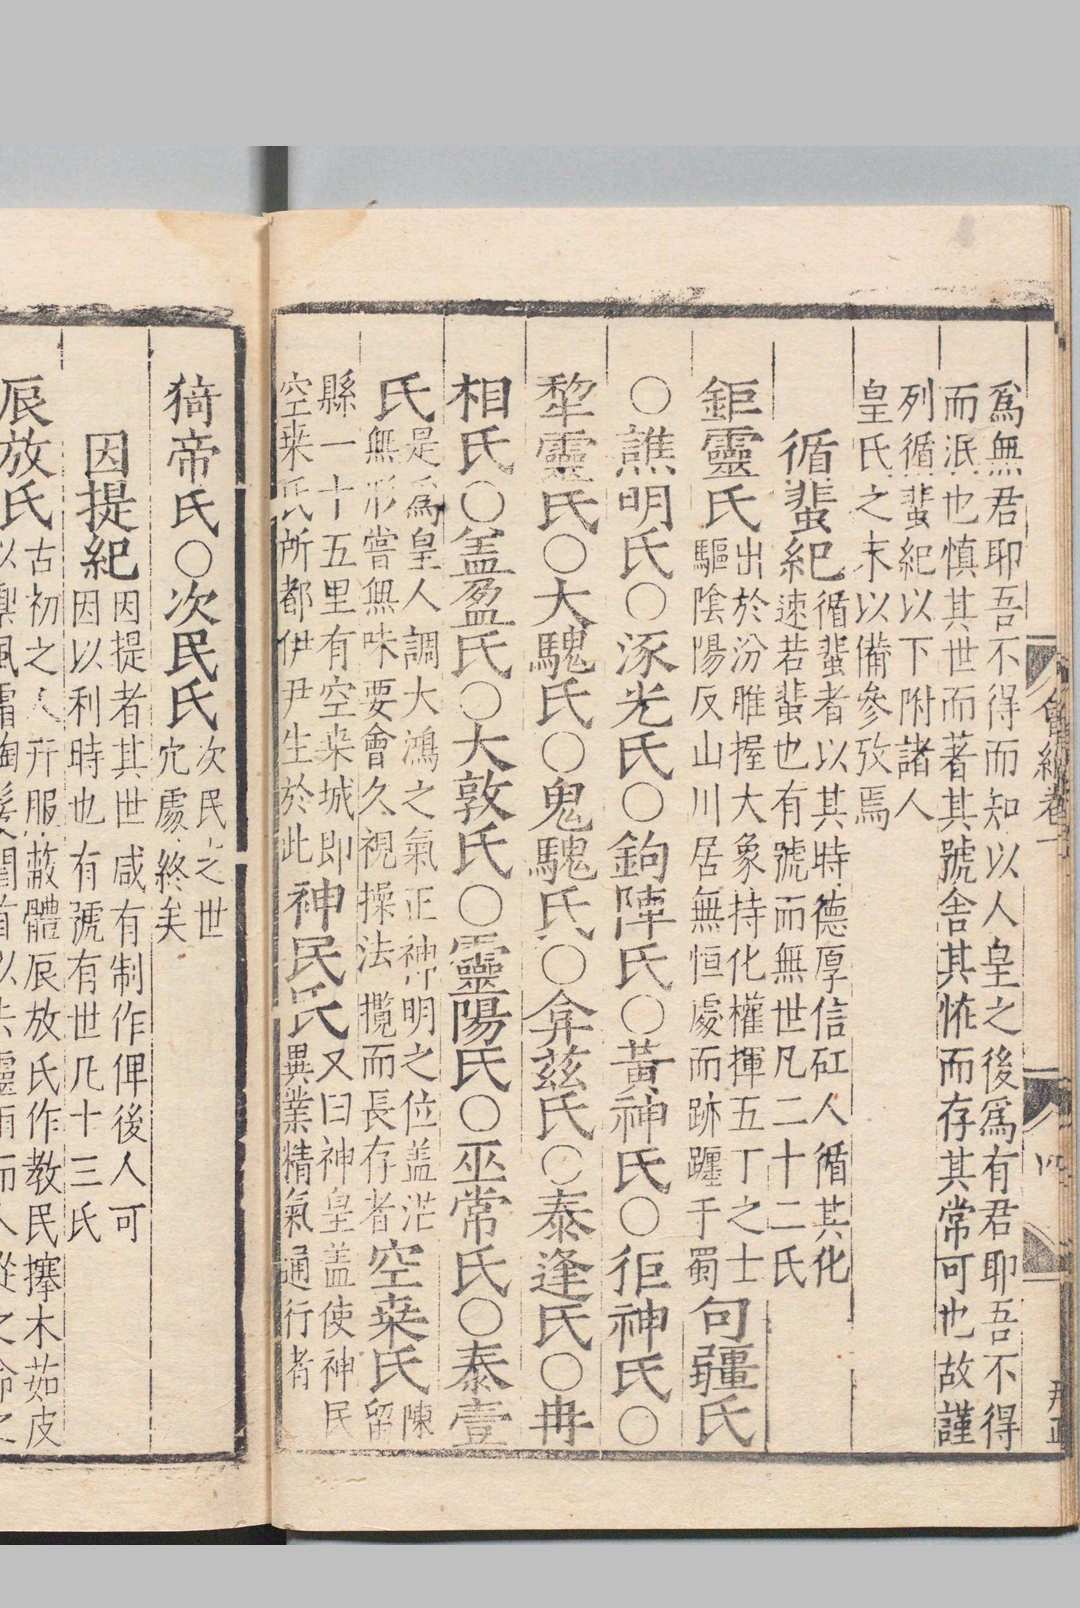 爲無君耶吾不得而知以人皇之後爲有君耶吾不得
而泯也慎其世而著其號舍其恠而存其常可也故謹
列循蜚紀以下附諸人
皇氏之末以備參攷焉
循蜚紀循蜚者以其時德厚信矼人循其化
速若蜚也有號而無世凡二十二氏
鉅靈氏出於汾脽握大象持化權揮五丁之士
驅陰陽反山川居無恒處而跡躔于蜀句疆氏
○譙明氏○涿光氏○鉤陣氏○黃神氏○狚神氏○
犂靈氏○大騩氏○鬼騩氏○弇茲氏○泰逢氏○冉
相氏○盖盈氏○大敦氏○靈陽氏○巫常氏○泰壹
氏是爲皇人調大鴻之氣正神明之位盖茫
無形嘗無味要會久視操法攬而長存者空桒氏陳
留
縣一十五里有空桒城即
空桒氏所都伊尹生於此神民氏又曰神皇盖使神民
異業精氣通行者
猗帝氏○次民氏次民之世
穴處終矣
因提紀因提者其世咸有制作俾後人可
因以利時也有號有世凡十三氏
辰放氏古初之人卉服蔽體辰放氏作教民㩭木茹皮
以禦風霜綯髮閏首以去靈雨而人從之命之
會紀卷一
四